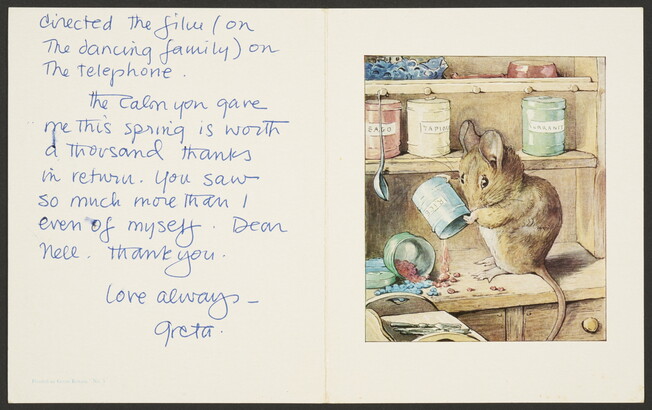 directed the film (on
The dancing family) on
The telephone.
The calm you gave
me this spring is worth
a thousand thanks
in return. You saw
so much more than I
even of myself. Dear
Nell. Thank you.
Love always –
Greta.
SAGO
TAPIOC